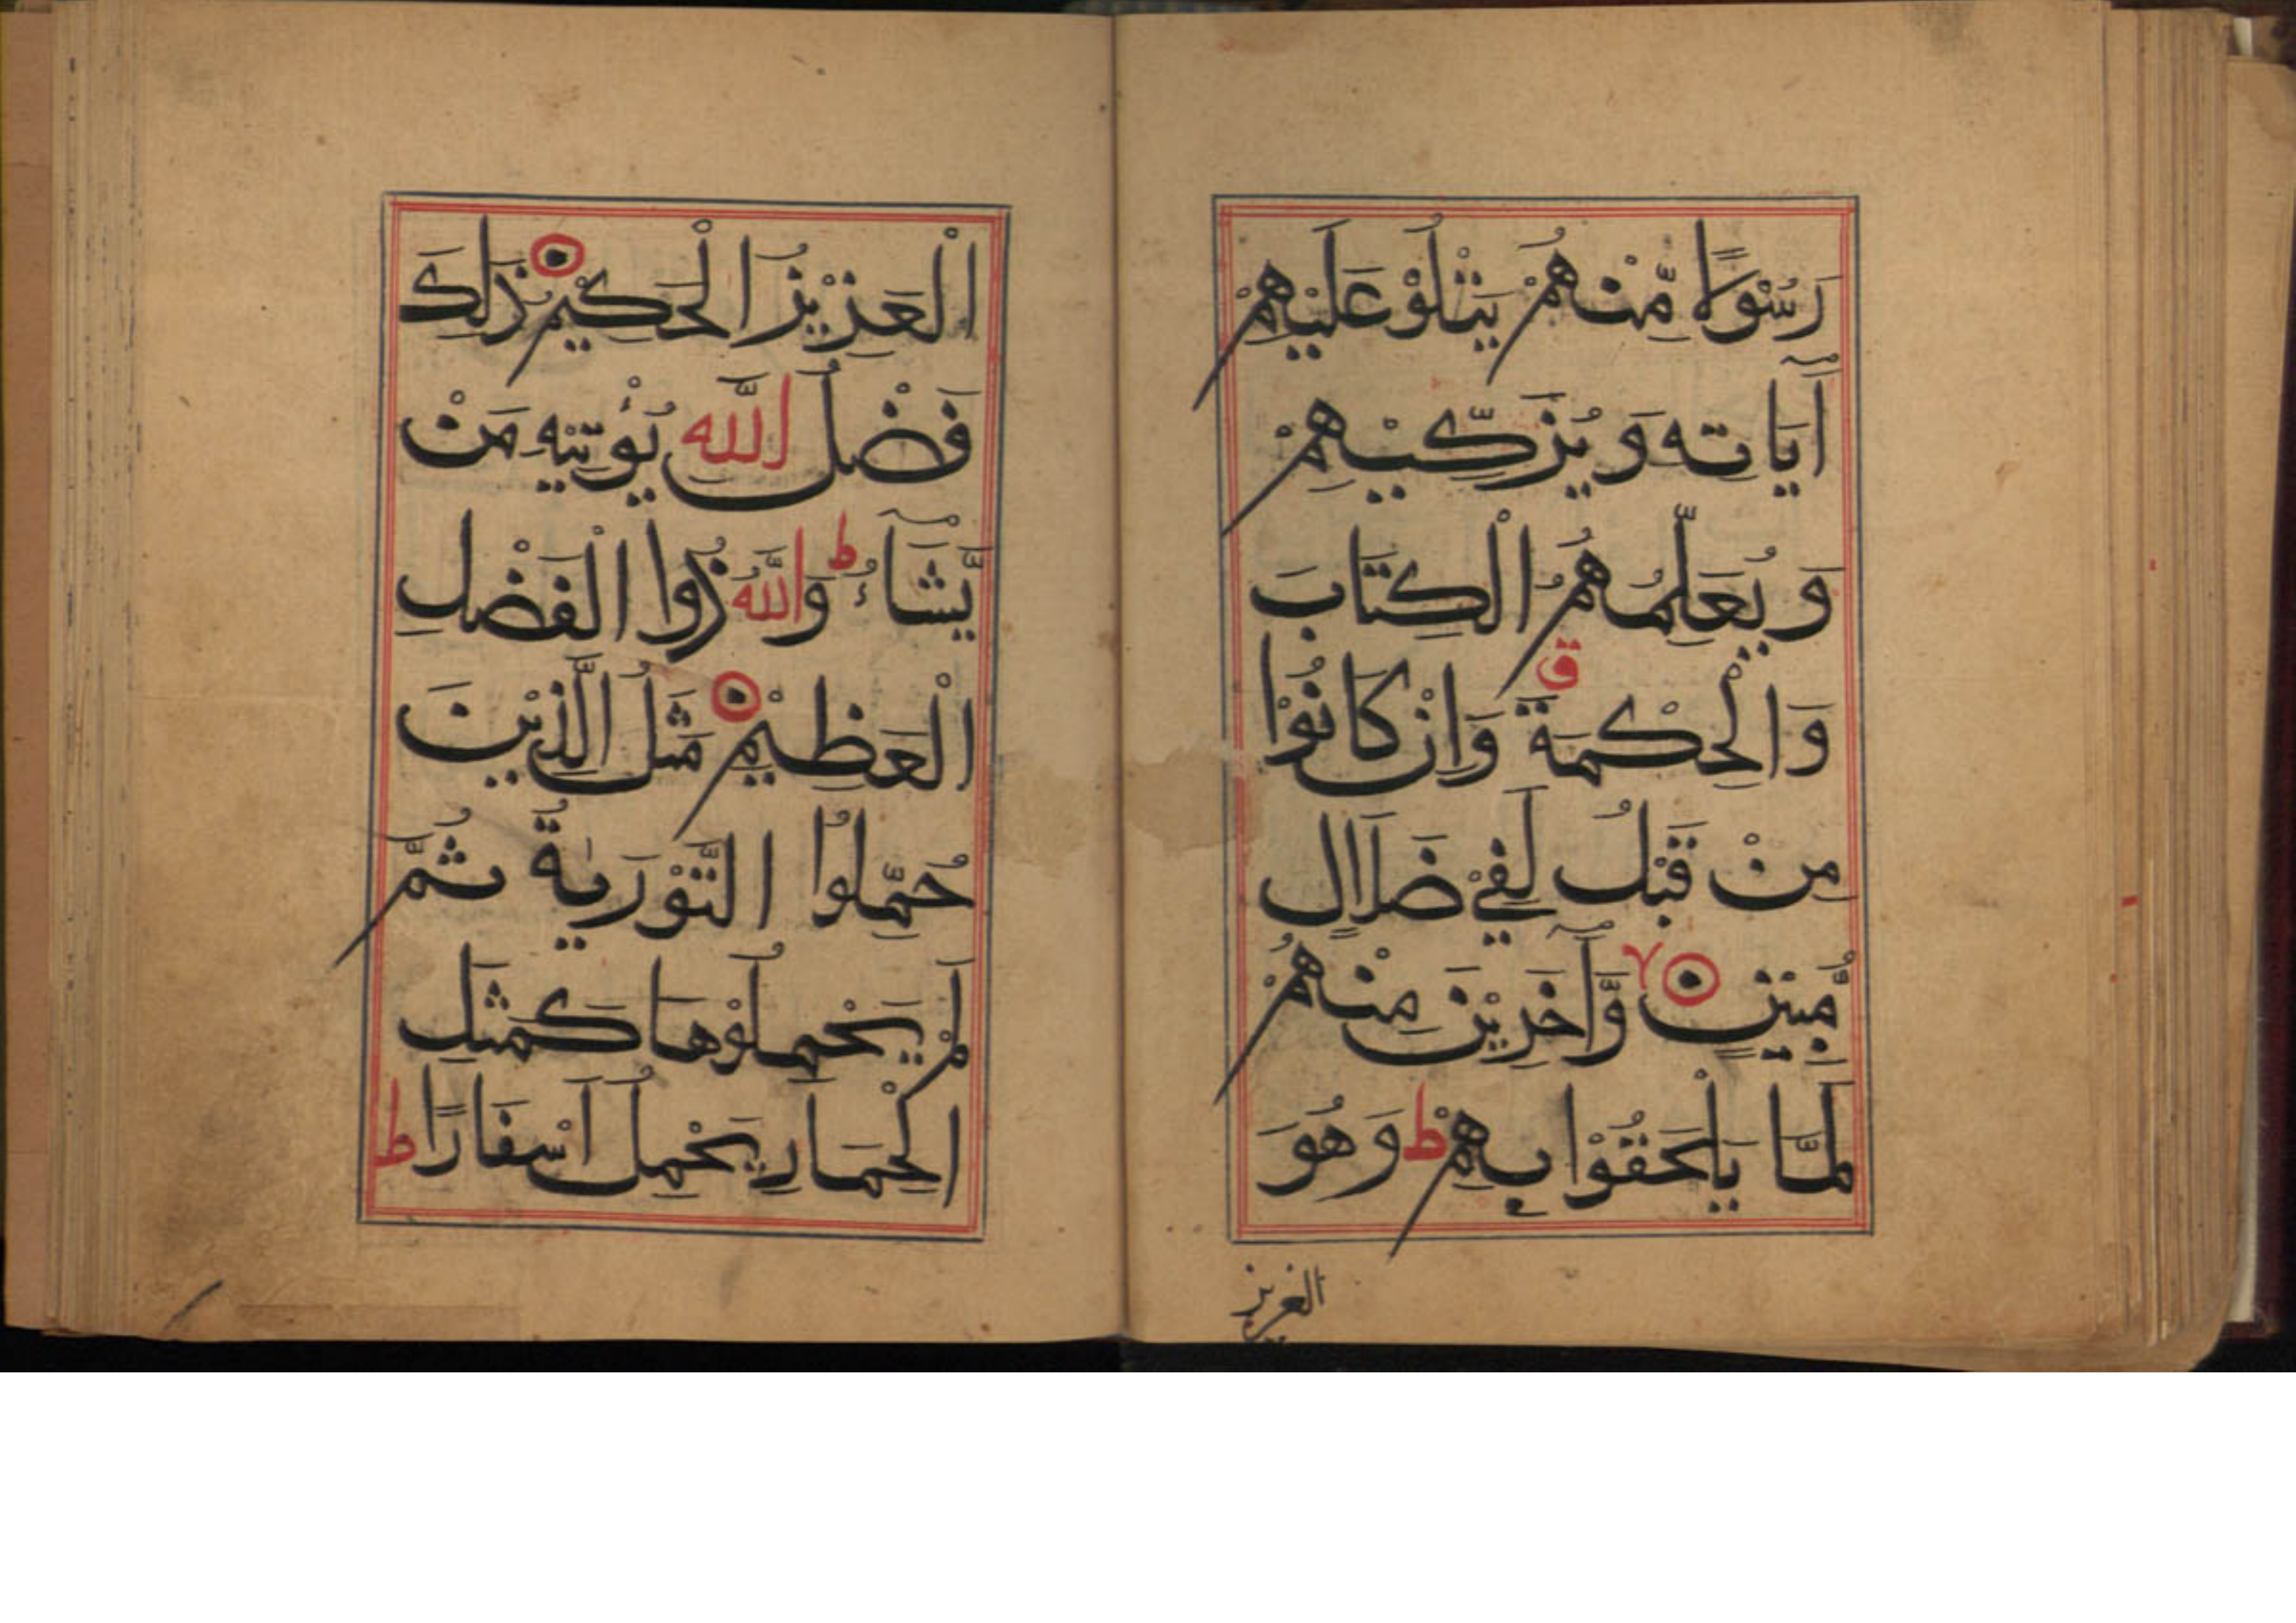 رَسُوْلًا مِّنْهُمْ يَتْلُوْ عَلَيْهِمْ
آيَاتِه وَ يُزَكِّيْهِمْ
وَ يُعَلِّمُهُمُ الْكِتَابَ
وَالْحِكْمَةَ ق وَاِنْ كَانُوْا
مِنْ قَبْلُ لَفِيْ ضَلَالٍ
مُّبِيْنٍ ۙ وَّآخَرِيْنَ مِنْهُمْ
لَمَّا يَلْحَقُوْا بِهِمْ ط وَهُوَ
العزيز
الْعَزِيْزُ الْحَكِيْمُ ذٰلِكَ
فَضْلُ اللّٰه يُؤْتِيْهِ مَنْ
يَّشَآءُ ط وَاللّٰهُ ذُوا الْفَضْلِ
الْعَظِيْمِ مَثَلُ الَّذِيْنَ
حُمِّلُوا التَّوْرٰيةَ ثُمَّ
لَمْ يَحْمِلُوْهَا كَمَثَلِ
الْحِمَارِ يَحْمِلُ اَسْفَارًا ط